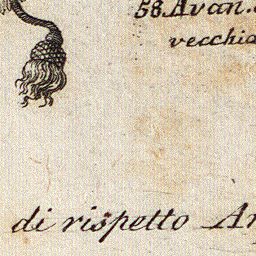 58. Avan.
vecchia
di rispetto